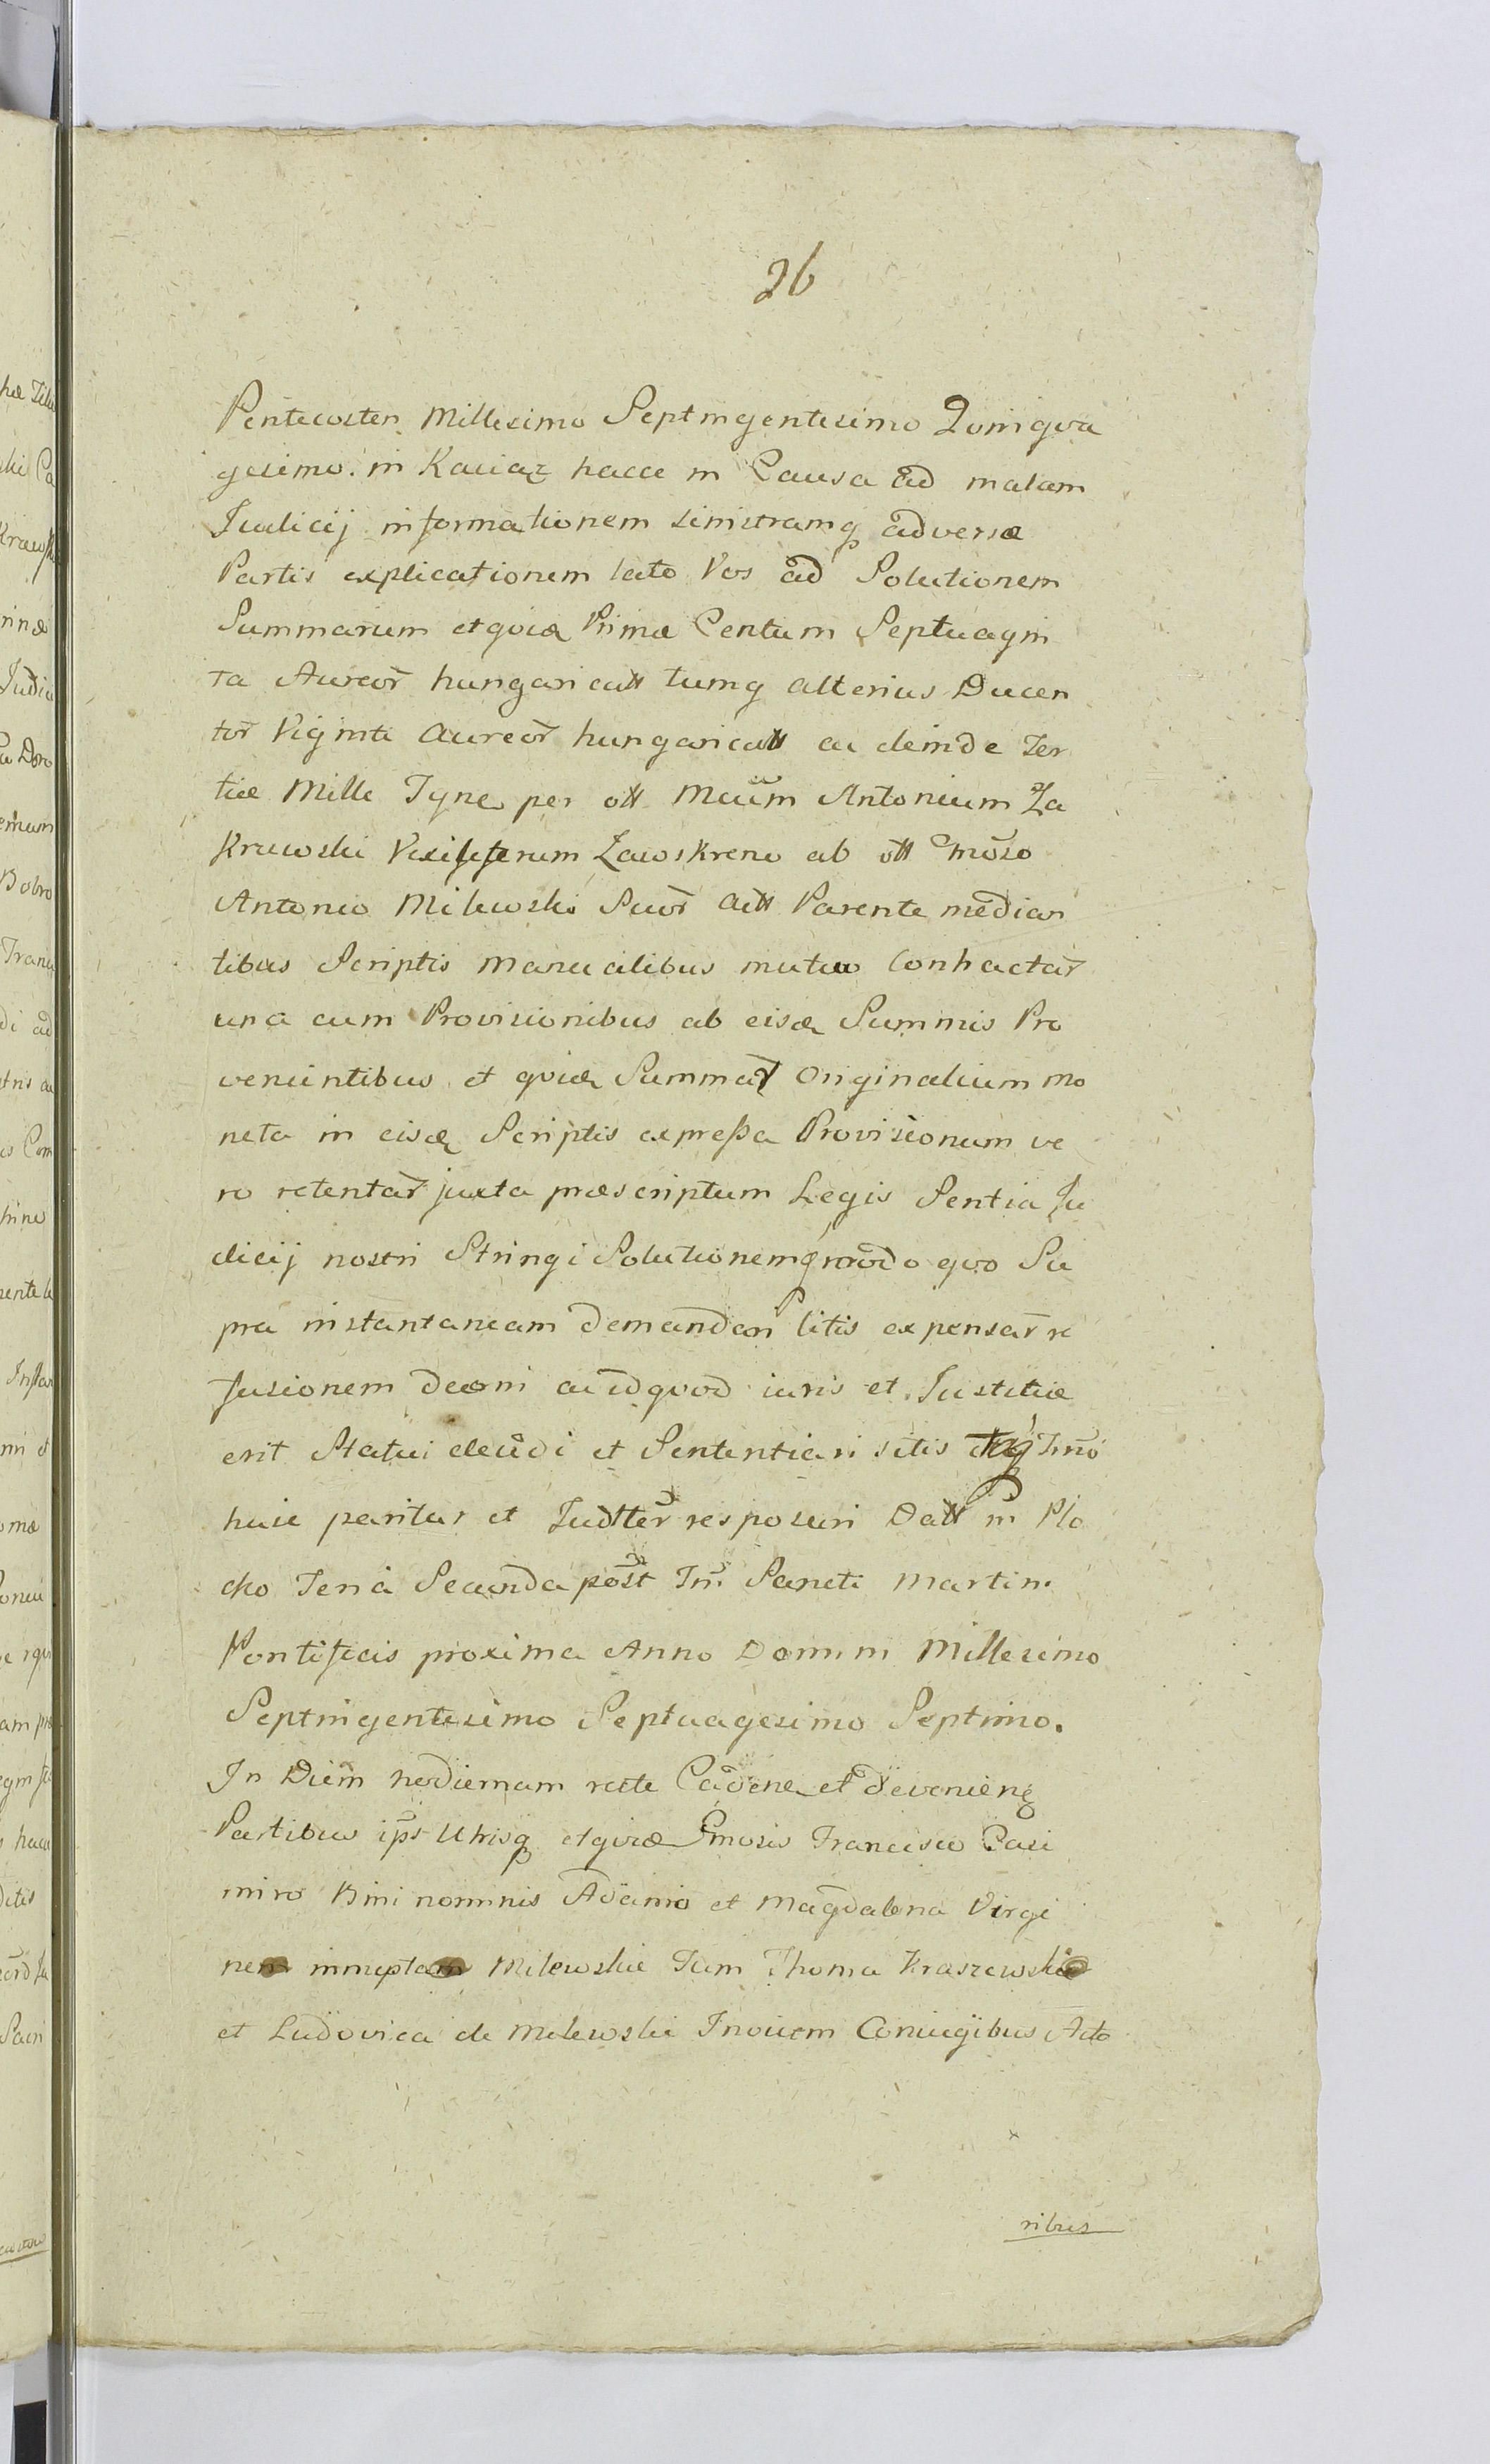 26
Pentecosten Millesimo Septingentesimo Qvinqva
gesimo in Raciąz hacce in Causa ad malam
Judicij informationem sinistramq adversæ
Partis explicationem lato Vos ad Solutionem
Summarum etqviæ Primæ Centum Septuagin
ta Aureor̃ hungaricall tumq alterius Ducen
tor̃ Viginti Aureor̃ hungaricall ac deinde Ter
tiæ Mille Tyne per oll Mcum Antonium Za
krzewski Vexilliferum Zawskrzen ab oll Gmoso
Antonio Milewski Suor̃ Actt Parente median
tibus Scriptis Manualibus mutuo Contractar̃
una cum Provisionibus ab eisd Summis Pro
venientibus et qvidem Summar̃ Originalium mo
neta in eisd Scriptis expressa Provisionum ve
ro retentar̃ juxta præscriptum Legis Sentia Ju
dicij nostri Stringi Solutionemq modo qvo Su
pra instantaneam demandari litis expensar̃ re
fusionem decerni ac idqvod iuris et Justitiæ
erit Statui decidi et Sententiari sitis Tmo
huic parituri et Judtter responsuri Datt in Plo
cko Feria Secunda post Fm Sancti Martini
Pontificis proxima Anno Domini Millesimo
Septingentesimo Septuagesimo Septimo.
In Diem hodiernam recte Caden et devenien
Partibus ips Utrisq etqviæ Gmosis Francisco Casi
miro Bini nominis Adamo et Magdalena Virgi
nem innuptam Milewskie Tum Thoma Kraszewskie
et Ludovica de Milewskie Invicem Coniugibus Acto
ribus